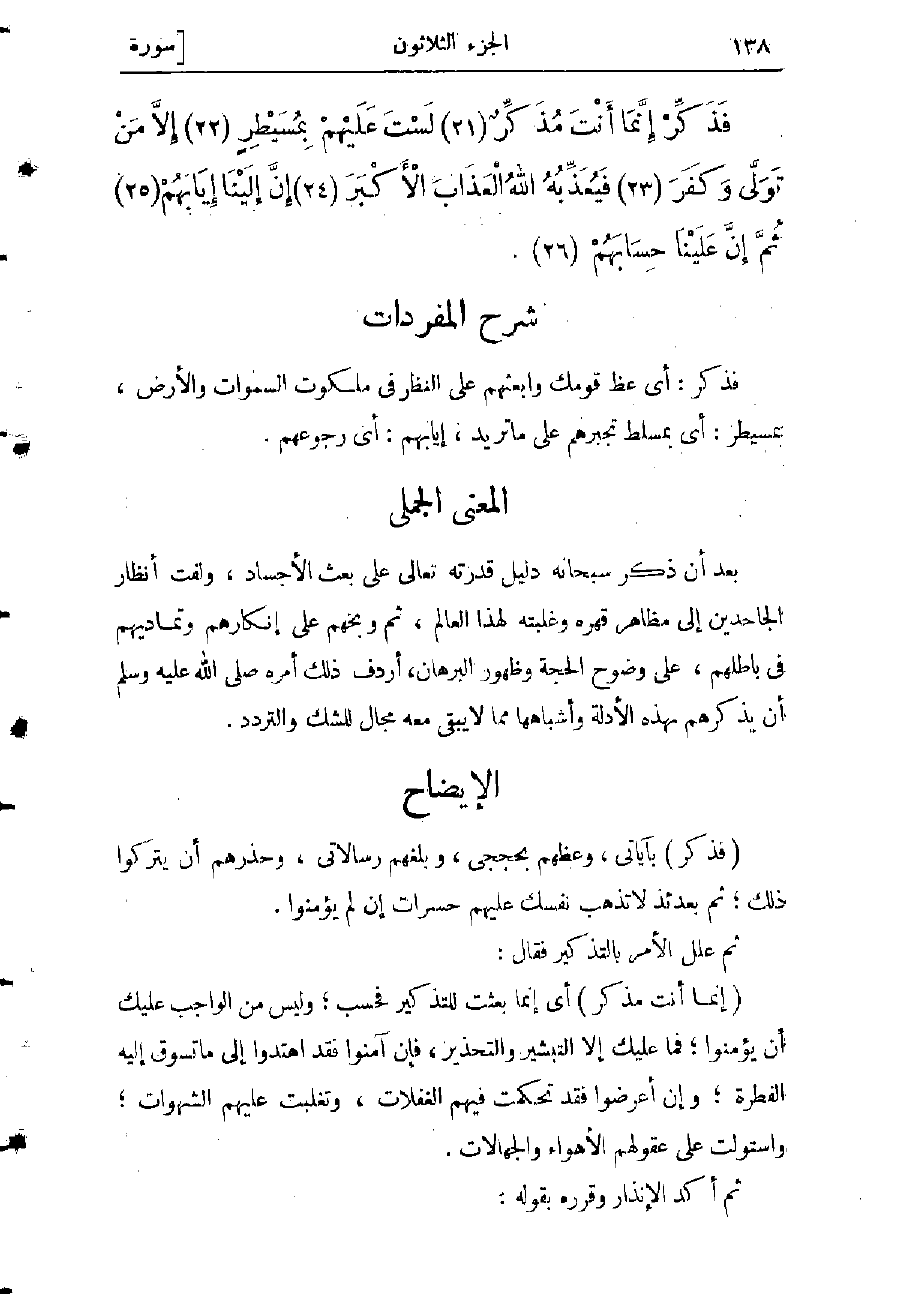 ١٣٨ الجزء الثلاثون [سورة
فَذَكِّرْ إِنَّمَا أَنْتَ مُذَكِّرٌ (٢١) لَسْتَ عَلَيْهِمْ بِمُسَيْطِرٍ (٢٢) إِلاَّ مَنْ
تَوَلَّى وَكَفَرَ (٢٣) فَيُعَذِّبُهُ اللهُ الْعَذَابَ الْأَكْبَرَ (٢٤) إِنَّ إِلَيْنَا إِيَابَهُمْ (٢٥)
ثُمَّ إِنَّ عَلَيْنَا حِسَابَهُمْ (٢٦) .
شرح المفردات
فذكر : أى عظ قومك وابعثهم على النظار فى ملكوت السموات والأرض ،
بمسيطر : أى بمسلط تجبرهم على ماتريد ، إيابهم : أى رجوعهم .
المعنى الجملى
بعد أن ذكر سبحانه دليل قدرته تعالى على بعث الأجساد ، ولفت أنظار
الجاحدين إلى مظاهر قهره وغلبته لهذا العالم ، ثم وبخهم على إنكارهم وتماديهم
فى باطلهم ، على وضوح الحجة وظهور البرهان، أردف ذلك أمره صلى الله عليه وسلم
أن يذكرهم بهذه الأدلة وأشباهها مما لايبقى معه مجال للشك والتردد .
الإيضاح
( فذكر ) بآياتى ، وعظهم بحججى ، وبلغهم رسالاتى ، وحذرهم أن يتركوا
ذلك ؛ ثم بعدئذ لاتذهب نفسك عليهم حسرات إن لم يؤمنوا .
ثم علل الأمر بالتذكير فقال :
( إنما أنت مذكر ) أى إنما بعثت للتذكير فحسب ؛ وليس من الواجب عليك
أن يؤمنوا ؛ فما عليك إلا التبشير والتحذير ، فإن آمنوا فقد اهتدوا إلى ماتسوق إليه
الفطرة ؛ وإن أعرضوا فقد تحكمت فيهم الغفلات ، وتغلبت عليهم الشهوات ؛
واستولت على عقولهم الأهواء والجهالات .
ثم أكد الإنذار وقرره بقوله :